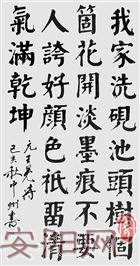 我家洗硯池頭樹個
箇花開淡墨痕不要
人誇好顔色祇留清
氣滿乾坤
元王冕詩
己亥秋中州書